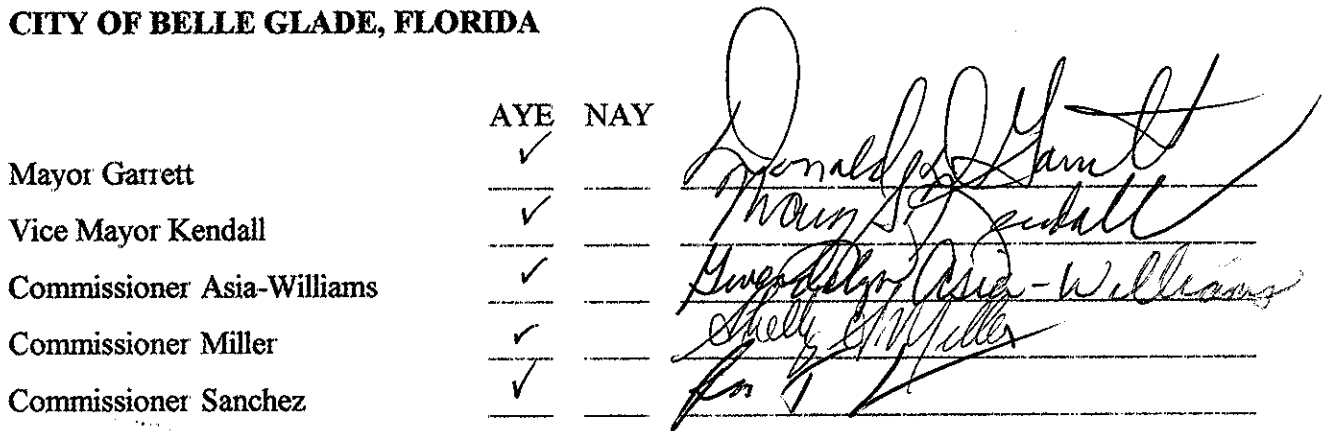 CITY OF BELLE GLADE, FLORIDA
AYE NAY
Mayor Garrett ✓ Donald Garrett
Vice Mayor Kendall ✓ Kendall
Commissioner Asia-Williams ✓ Gwendolyn Asia-Williams
Commissioner Miller ✓ Shelly Miller
Commissioner Sanchez ✓